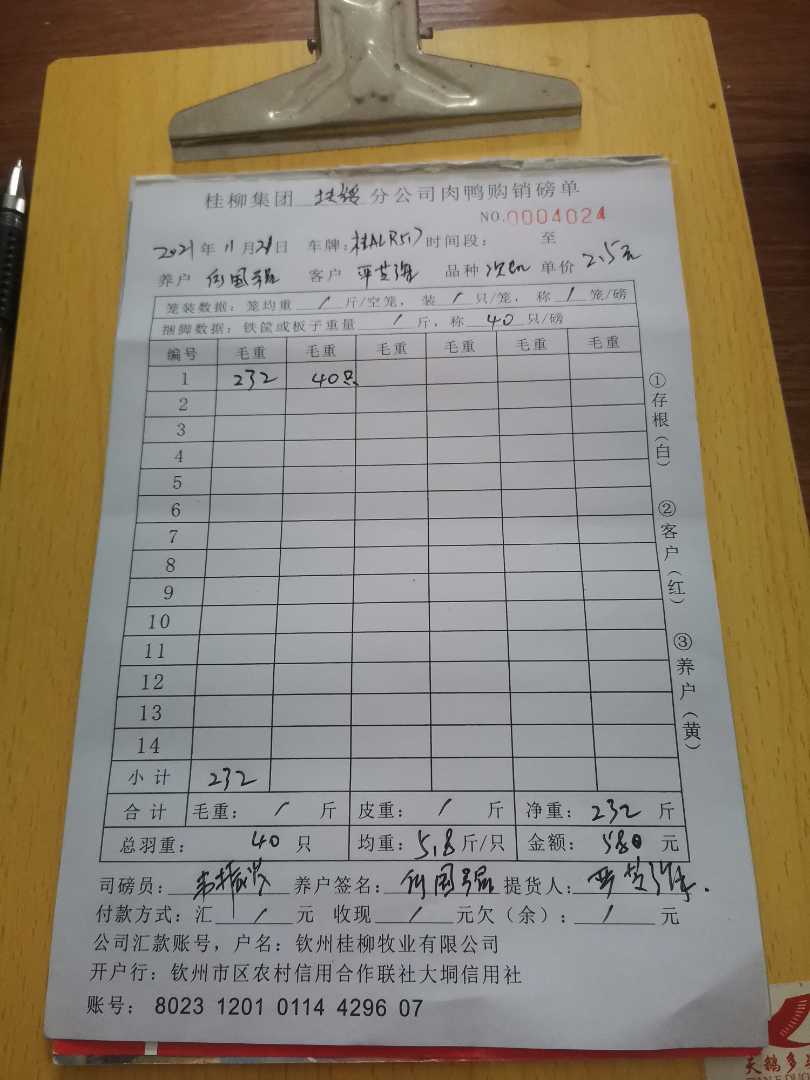 桂柳集团 扶绥 分公司肉鸭购销磅单
NO.0004024
2021年11月21日 车牌: 时间段: 至
养户 何国强 客户 品种 次鸭 单价 2.5元
笼装数据: 笼均重 / 斤/空笼, 装 / 只/笼, 称 / 笼/磅
捆脚数据: 铁筐或板子重量 / 斤, 称 40 只/磅
编号 毛重 毛重 毛重 毛重 毛重 毛重
1 232 40只
2
3
4
5
6
7
8
9
10
11
12
13
14
小计 232
合计 毛重: / 斤 皮重: / 斤 净重: 232 斤
总羽重: 40 只 均重: 5.8 斤/只 金额: 580 元
司磅员: 养户签名: 何国强 提货人:
付款方式: 汇 / 元 收现 / 元欠(余): / 元
公司汇款账号, 户名: 钦州桂柳牧业有限公司
开户行: 钦州市区农村信用合作联社大垌信用社
账号: 8023 1201 0114 4296 07
①存根(白)
②客户(红)
③养户(黄)
天鹅多